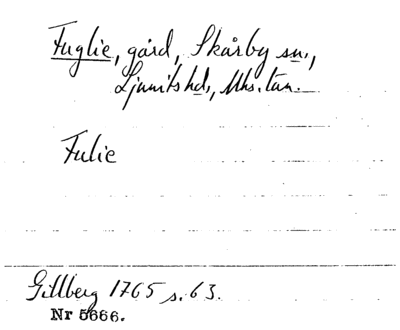 Fuglie, gård, Skårby sn.,
Ljunits hd., Mhs. län.
Fulie
Gillberg 1765 s. 63.
Nr 5666.